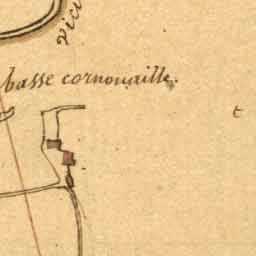 vici
basse cornouaille.
t